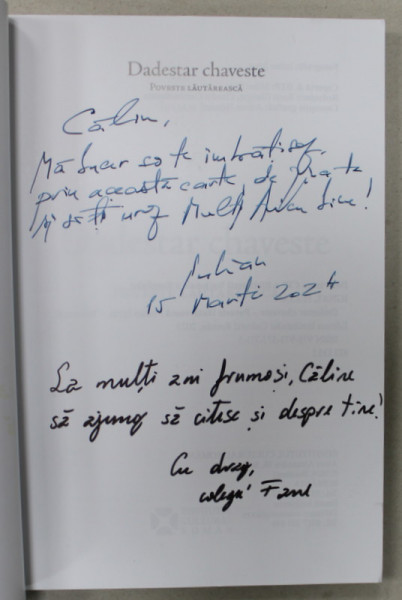 Dadestar chaveste
POVESTE LĂUTĂREASCĂ
Călin,
Mă bucur să te îmbrățișez,
prin această carte, de
și să-ți urez Mulți Ani bine!
Iulian
15 Martie 2024
dadestar chaveste
La mulți ani frumoși, Căline
să ajung să citesc și despre tine!
Cu drag,
colegu' Fane